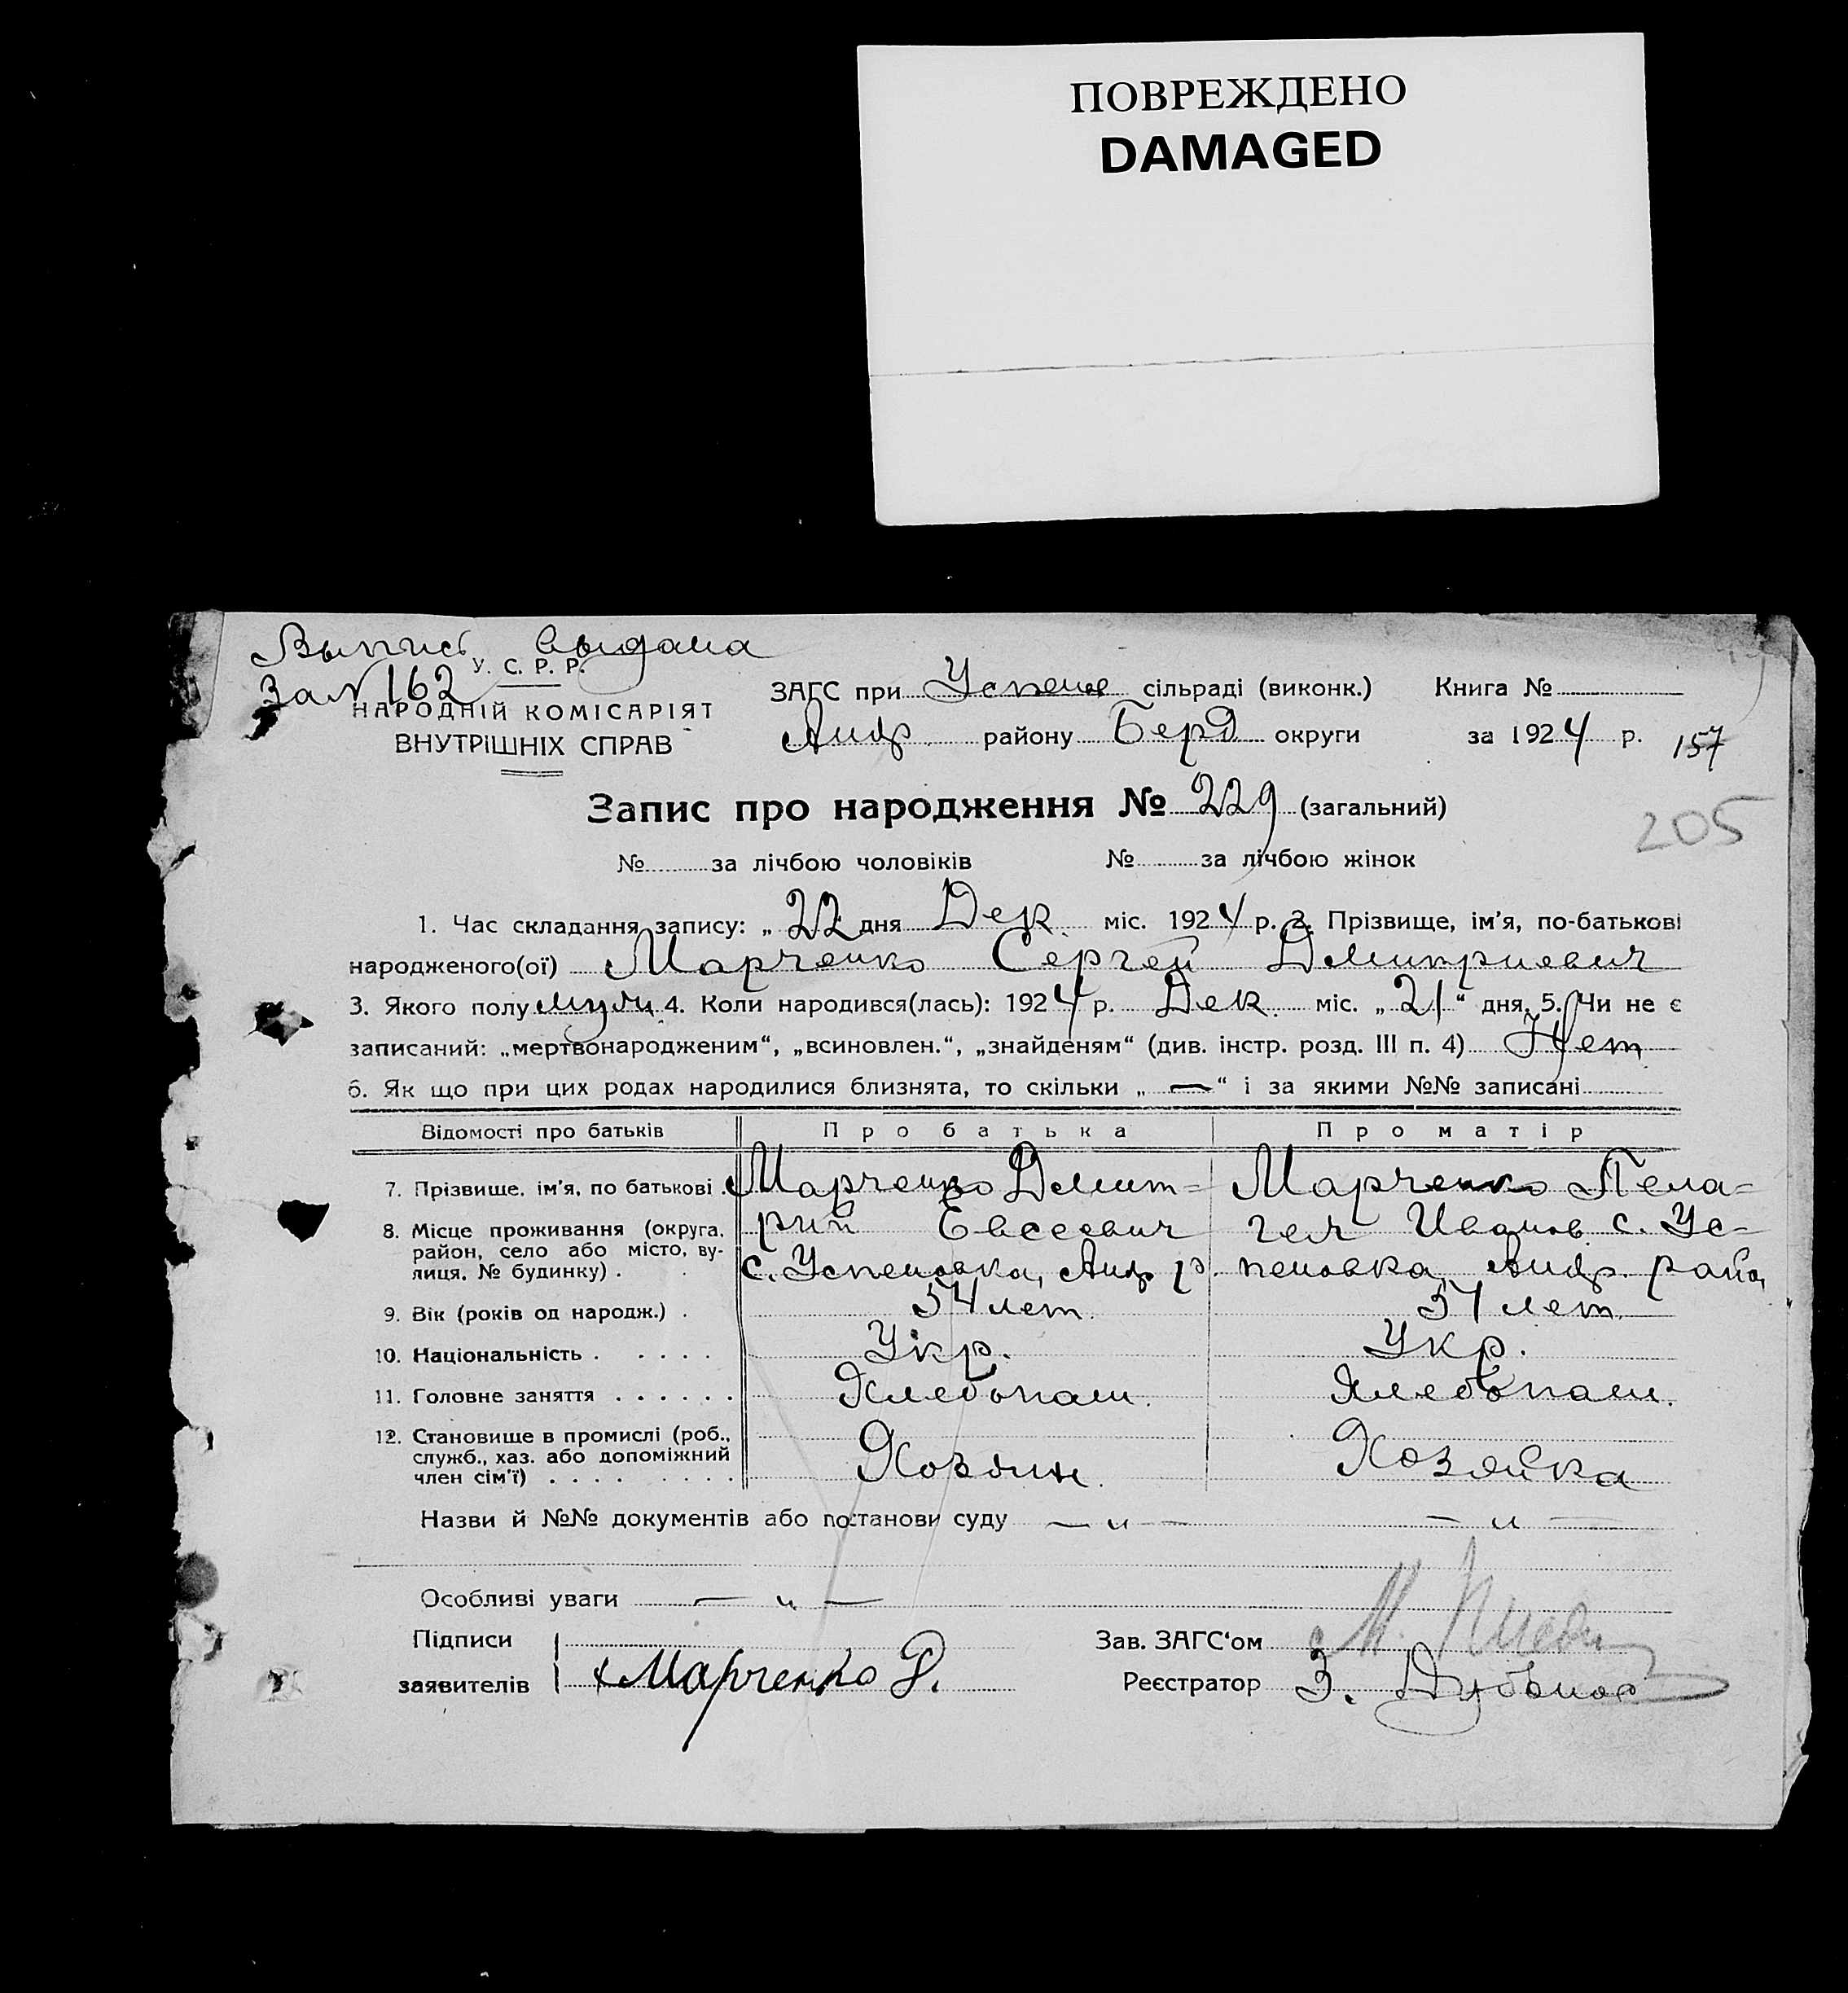 ПОВРЕЖДЕНО
DAMAGED
Выпись выдана
За № 162
У. С. Р. Р.
НАРОДНІЙ КОМІСАРІЯТ
ВНУТРІШНІХ СПРАВ
ЗАГС при Успенов сільраді (виконк.) Книга №
Андр. району Берд округи за 1924 р. 157
Запис про народження № 229 (загальний)
205
№ за лічбою чоловіків № за лічбою жінок
1. Час складання запису: „ 22 дня Дек. міс. 1924 р. 2. Прізвище, ім'я, по-батькові
народженого(ої) Марченко Сергей Дмитриевич
3. Якого полу муж. 4. Коли народився(лась): 1924 р. Дек. міс. „ 21 “ дня. 5. Чи не є
записаний: „мертвонародженим“, „всиновлен.“, „знайденям“ (див. інстр. розд. III п. 4) Нет
6. Як що при цих родах народилися близнята, то скільки „ — “ і за якими №№ записані
Відомості про батьків Про батька Про матір
7. Прізвище, ім'я, по батькові . Марченко Дмит= Марченко Пела=
8. Місце проживання (округа, рий Евсеевич гея Иванов. с. Ус=
район, село або місто, ву-
лиця, № будинку) . с. Успеновка, Андр р. пеновка, Андр. райо
9. Вік (років од народж.) . лет. лет.
10. Національність . . . . . Укр. Укр.
11. Головне заняття . . . . . . Хлебопаш. Хлебопаш.
12. Становище в промислі (роб.,
служб., хаз. або допоміжний
член сім'ї) . . . . . . . . Хозяин. Хозяйка
Назви й №№ документів або постанови суду — „ — — „ —
Особливі уваги — „ —
Підписи Зав. ЗАГС‘ом М.
заявителів Марченко Реєстратор З.